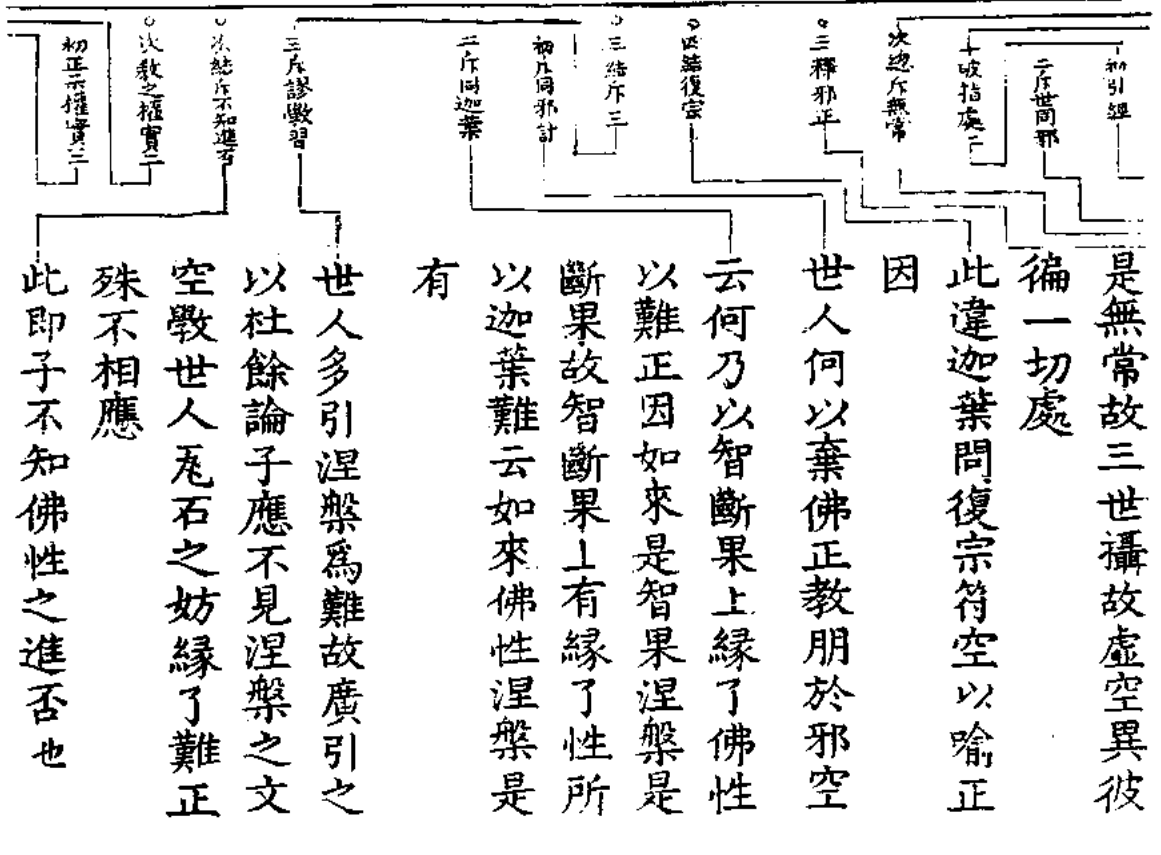 初引經
二斥世同邪
十破指處二
次總斥無常
三釋邪正
四結復宗
三結斥三
初凡同邪計
二斥同迦葉
三斥謬斆習
次結斥不知進否
次教之權實二
初正示權實三
是無常故三世攝故虛空異彼
徧一切處
此違迦葉問復宗符空以喻正
因
世人何以棄佛正教朋於邪空
云何乃以智斷果上緣了佛性
以難正因如來是智果涅槃是
斷果故智斷果上有緣了性所
以迦葉難云如來佛性涅槃是
有
世人多引涅槃爲難故廣引之
以杜餘論子應不見涅槃之文
空斆世人瓦石之妨緣了難正
殊不相應
此即子不知佛性之進否也